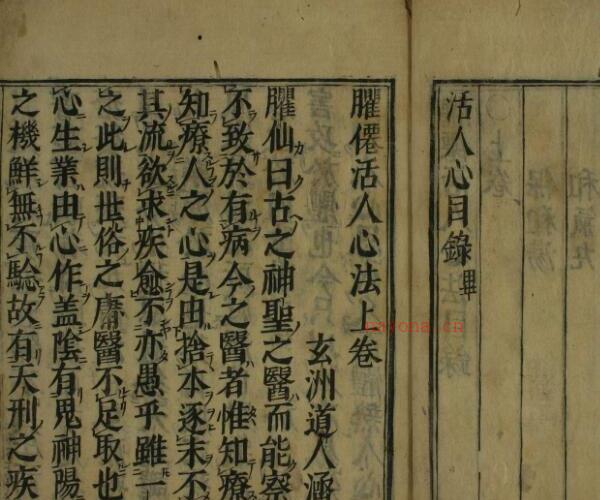 活人心目錄畢
臞僊活人心法上卷
玄洲道人涵
臞仙曰古之神聖之醫而能察
不致於有病今之醫者惟知療
知療人之心是由捨本逐末不
其流欲求疾愈不亦愚乎雖一
之此則世俗之庸醫不足取也
心生業由心作盖陰有鬼神陽
之機鮮無不驗故有天刑之疾
nayona.cn